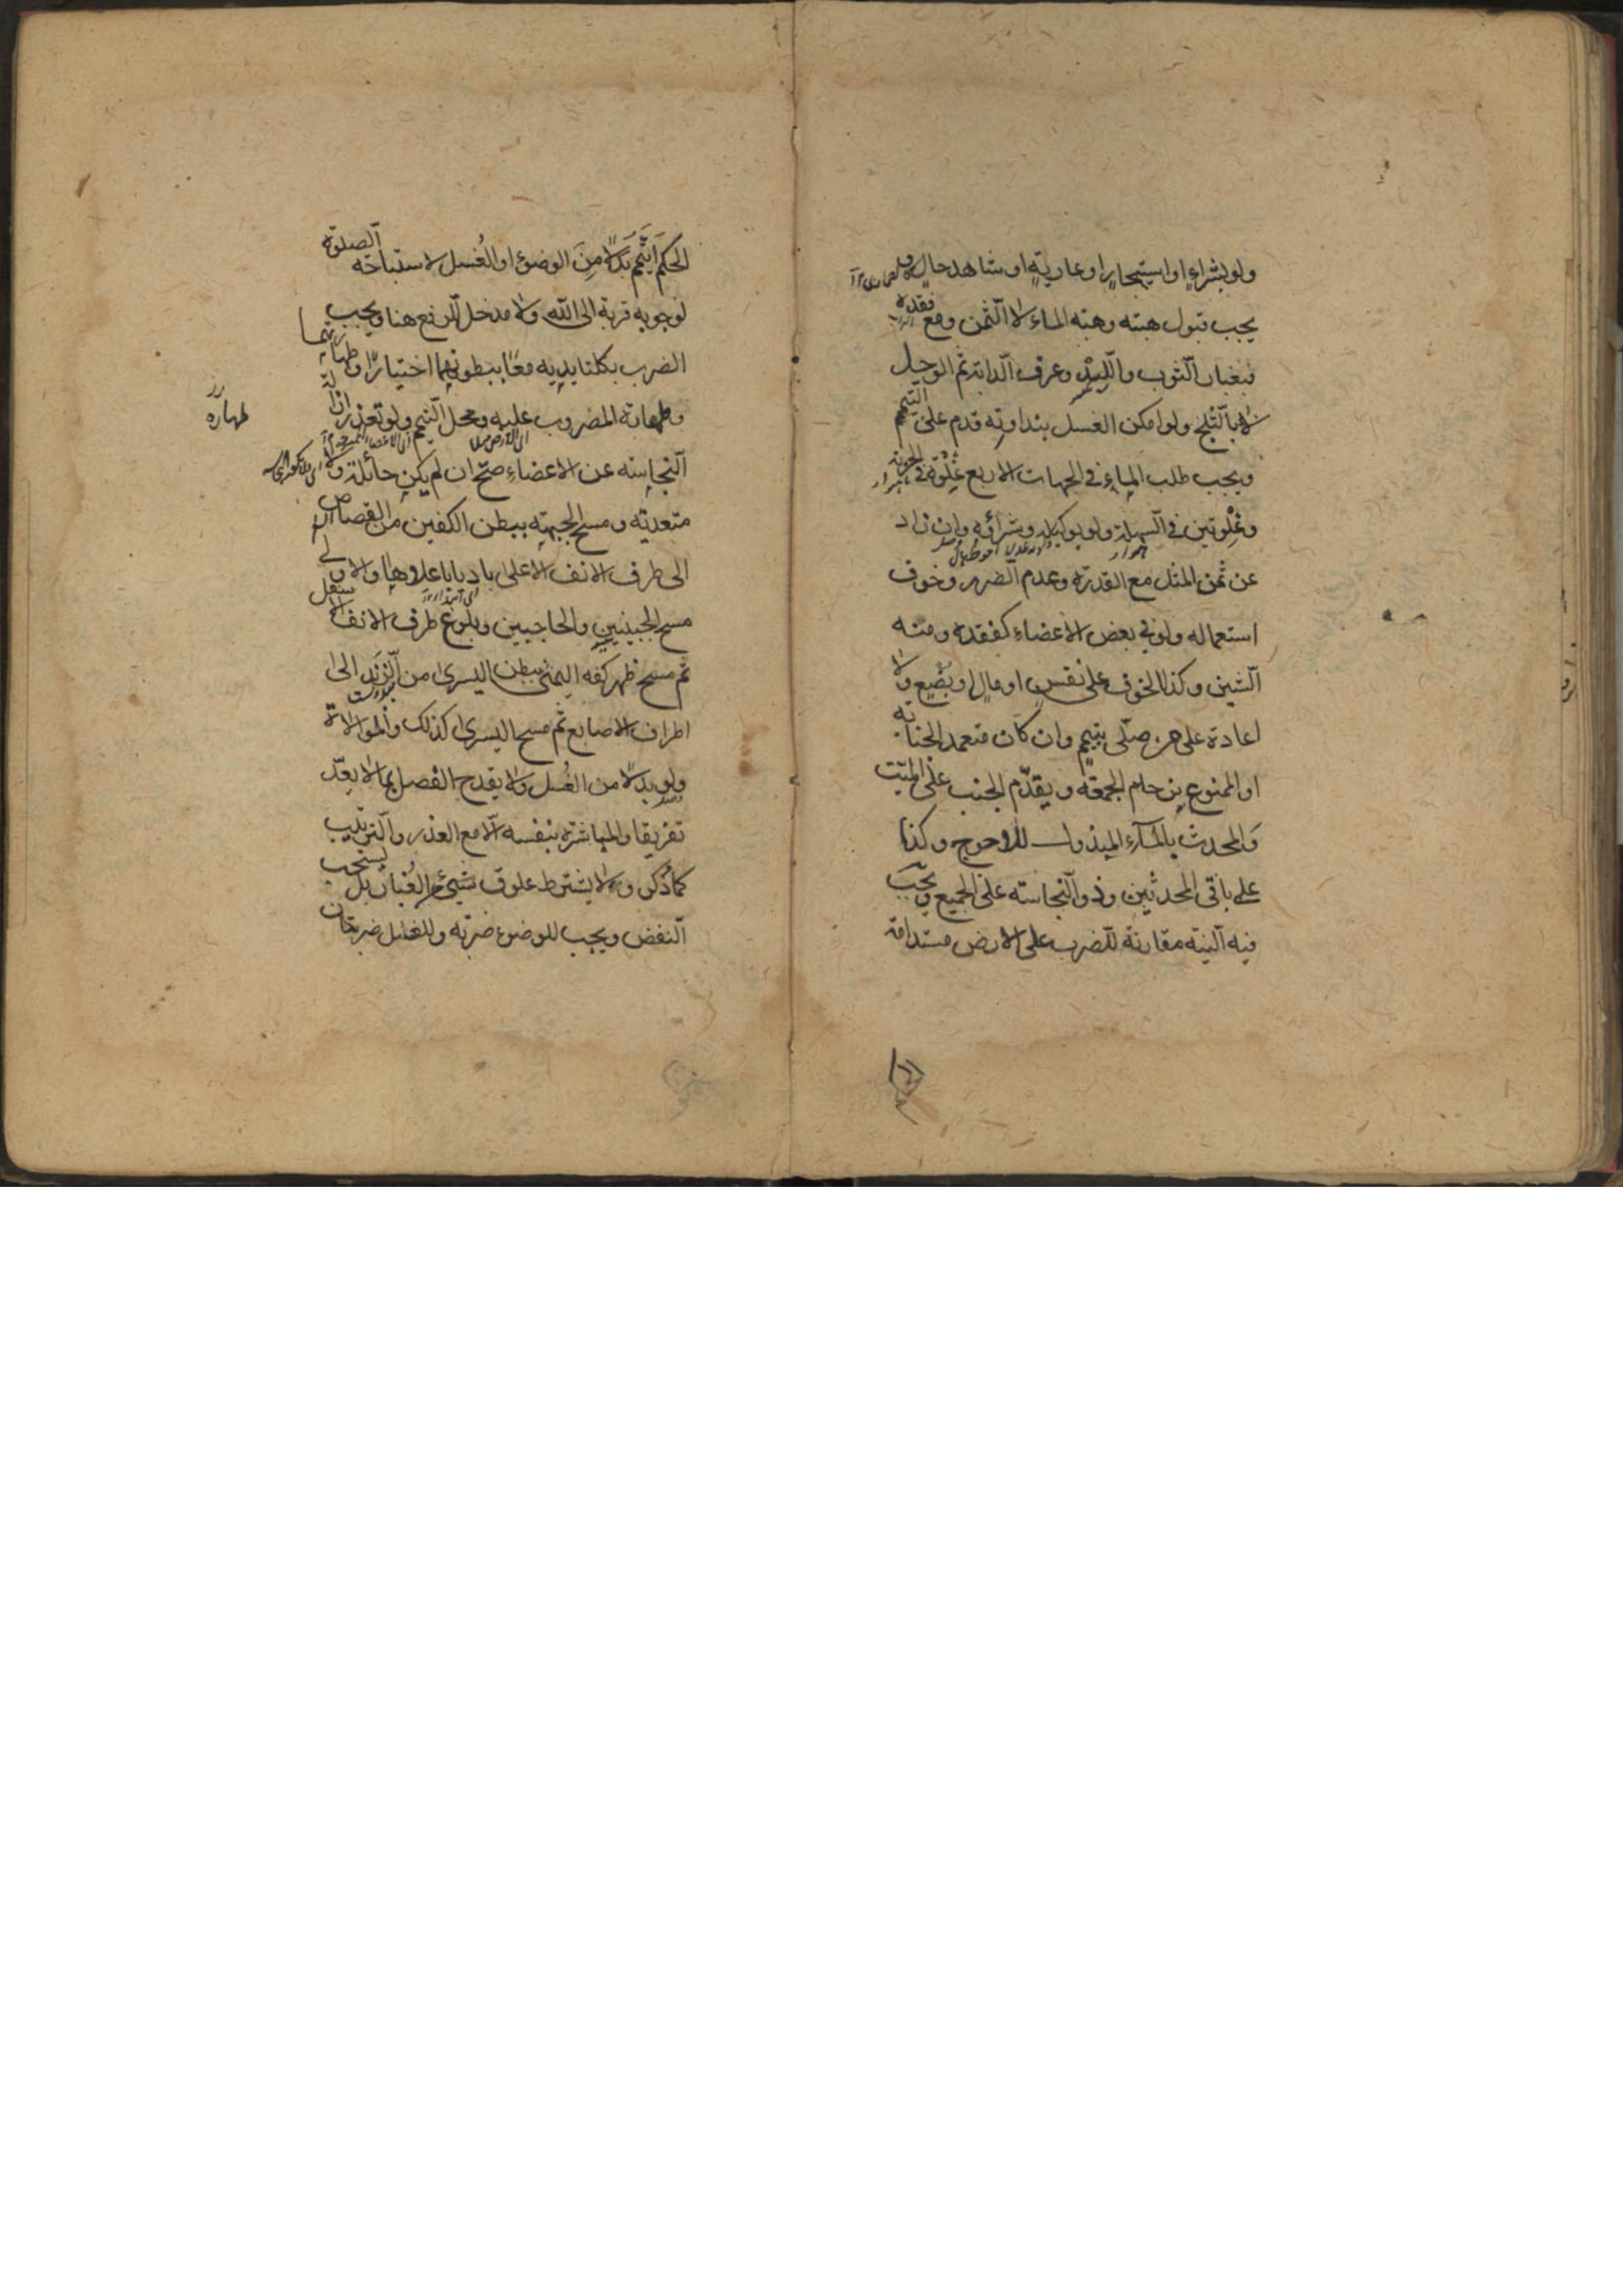 ولو بشراءٍ او استيجارٍ او عاريةٍ او شاهد حالٍ و
يجب قبول هبته وهبة الماء لا الثمن ومع فقده
فبغبار الثوب واللبد وعرف الدابة ثم الوحل
لا بالثلج ولو امكن الغسل بنداوته قدم على التيمم
ويجب طلب الماء في الجهات الاربع غلوة في الحزنة
وغلوتين في السهلة ولو بوكيله وشرائه وان زاد
عن ثمن المثل مع القدرة وعدم الضرر وخوف
استعماله ولو في بعض الاعضاء كفقده ومنه
الشين وكذا الخوف على نفسٍ او مالٍ او بضع ولا
اعادة على من صلى بتيمم وان كان متعمد الجنابة
او الممنوع من حام الجمعة ويقدم الجنب على الميت
والمحدث بالماء المبذول للاحوج وكذا
على باقي المحدثين وذو النجاسة على الجميع ويجب
فيه النية مقارنة للضرب على الارض مستدامة
الحكم اتيمم بدلا من الوضوء او الغسل لاستباحة الصلوة
لوجوبه قربة الى الله ولا مدخل للرفع هنا ويجب
الضرب بكلتا يديه معًا ببطونهما اختيارًا وطهارتهما
وطهارة المضروب عليه ومحل التيمم ولو تعذر ازالة
طهاره
النجاسة عن الاعضاء صح ان لم يكن حائلة ولا
متعدية ومسح الجبهة ببطن الكفين من القصاص
الى طرف الانف الاعلى باديا باعلاها والاولى
مسح الجبينين والحاجبين وبلوغ طرف الانف الاسفل
ثم مسح ظهر كفه اليمنى ببطن اليسرى من الزند الى
اطراف الاصابع ثم مسح اليسرى كذلك والموالاة
ولو بدلا من الغسل ولا يقدح الفصل بما لا يعد
تفريقا والمباشرة بنفسه الا مع العذر والترتيب
كما ذكر ولا يشترط علوق شيئ من الغبار بل يستحب
النفض ويجب للوضوء ضربة وللغسل ضربتان